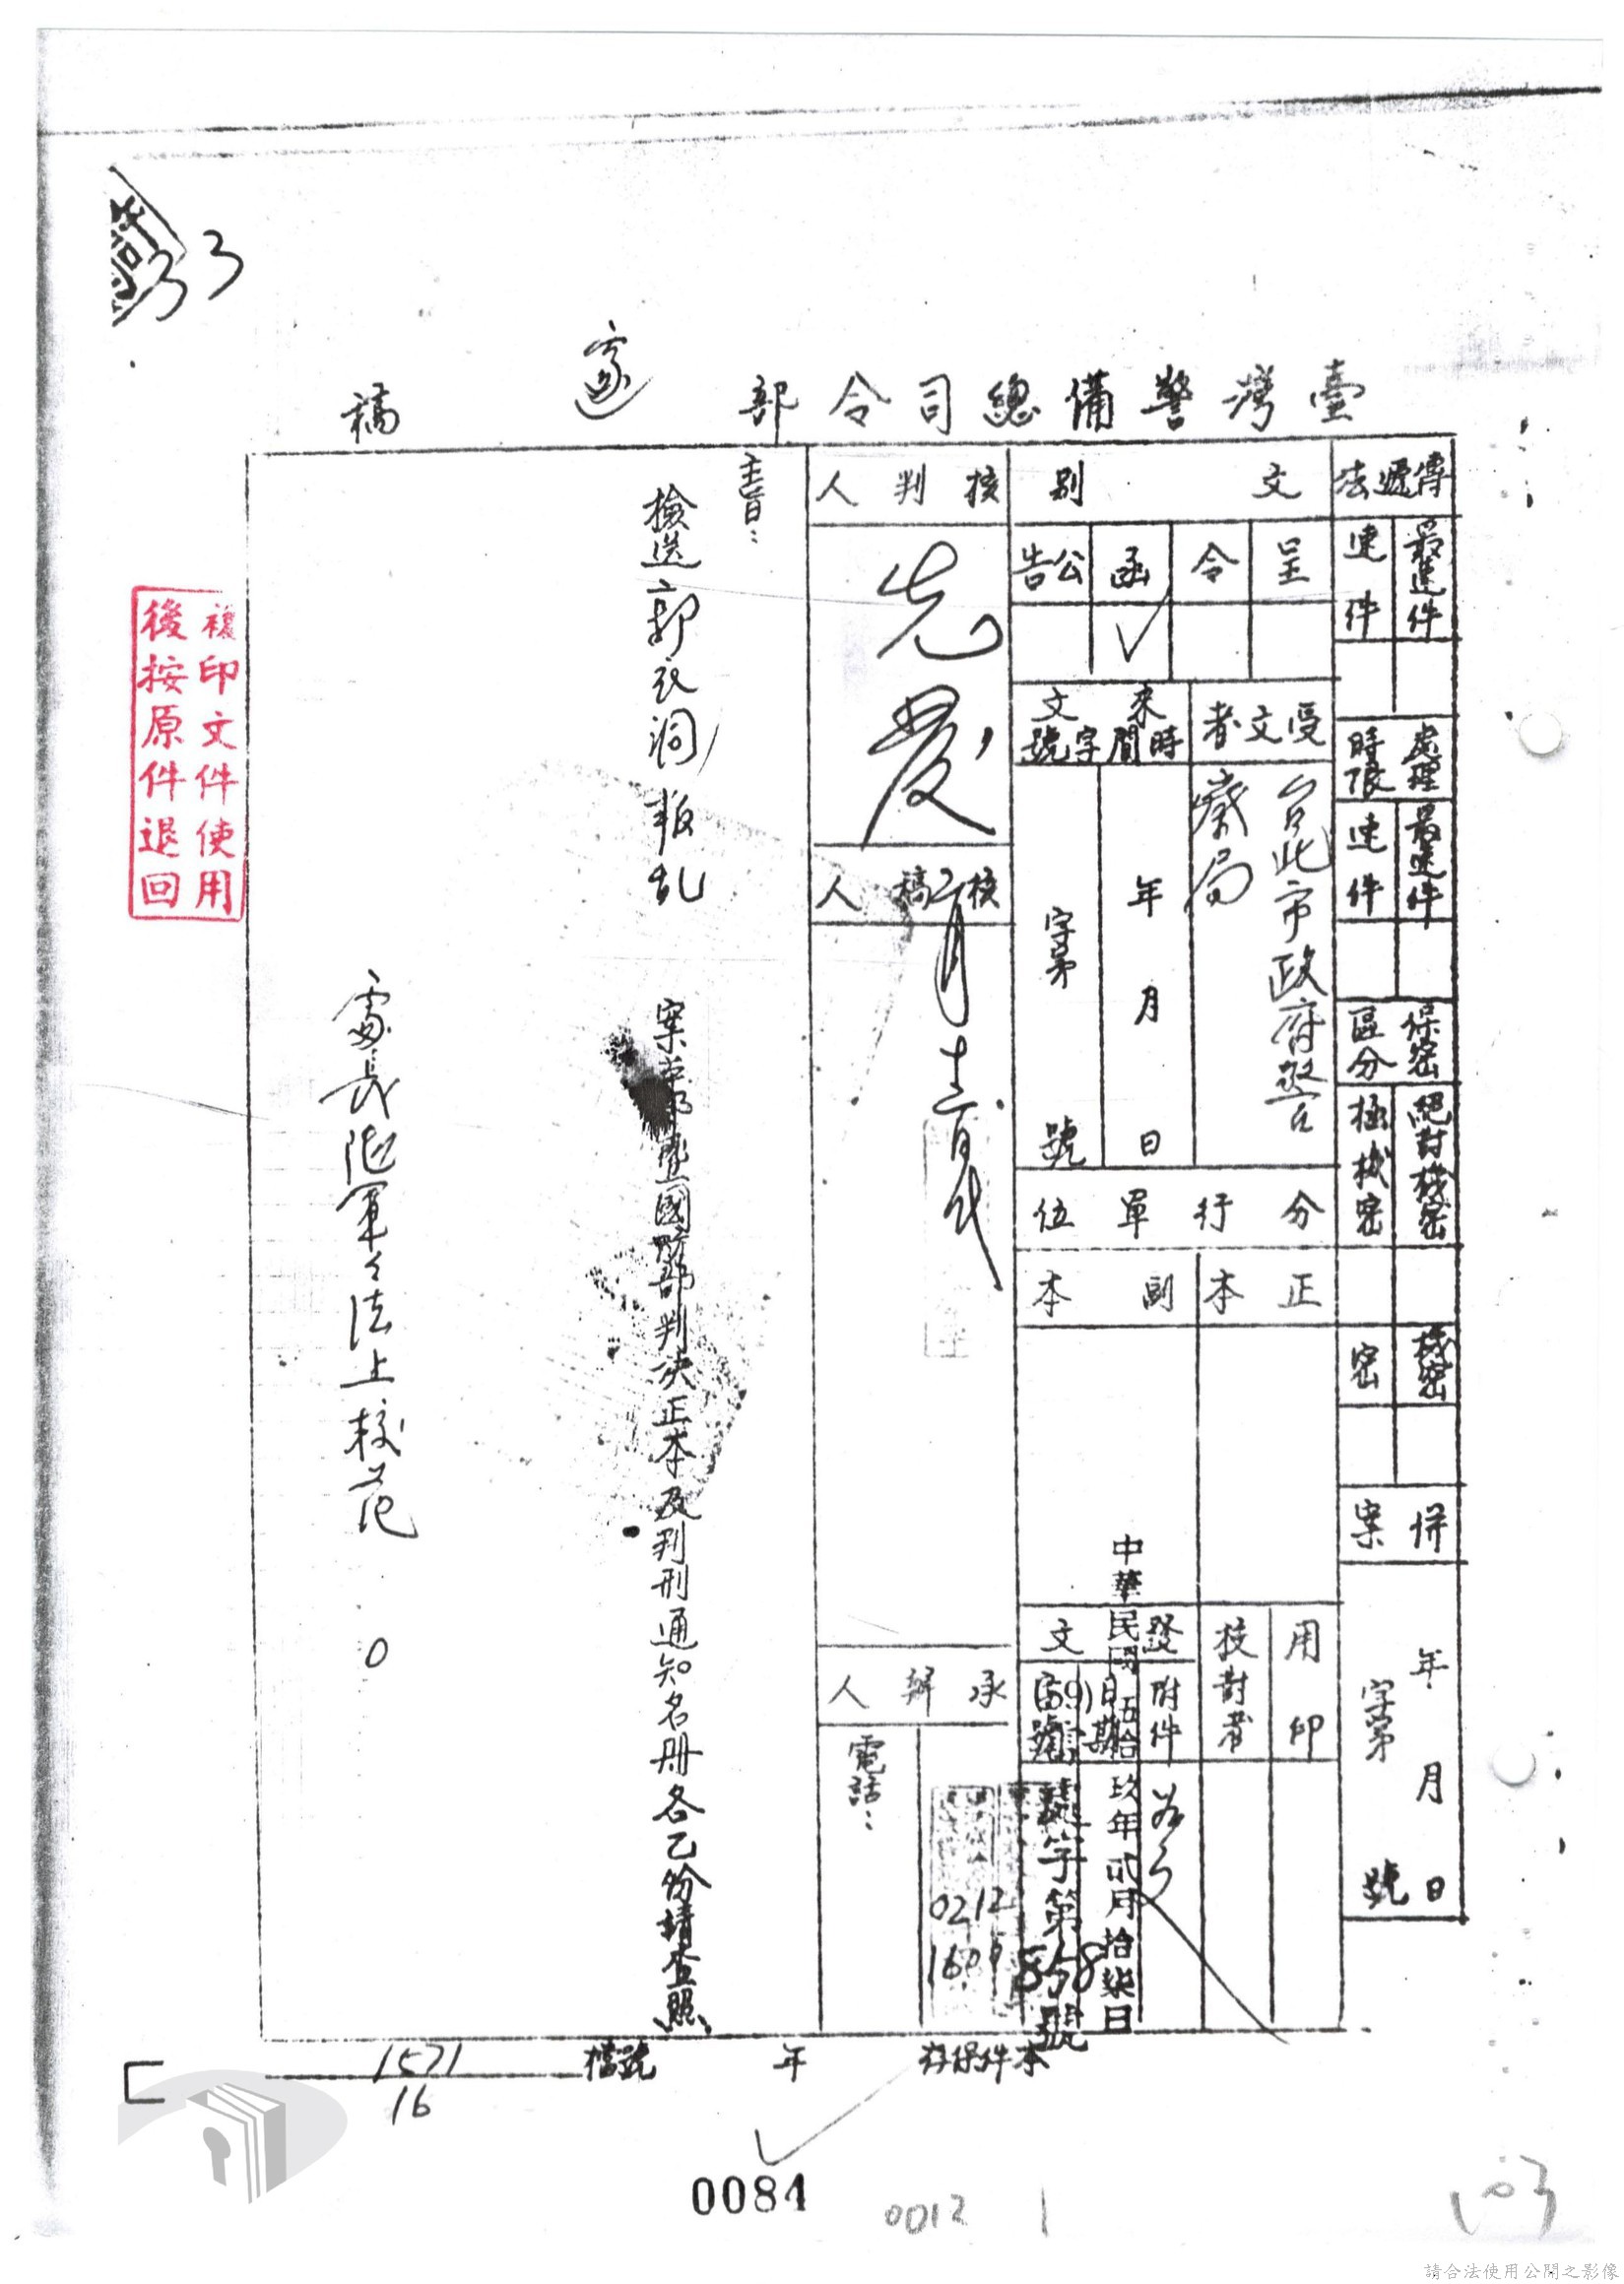 臺灣警備總司令部
稿
傳遞法
最速件
速件
處理時限
最速件
速件
保密區分
絕對機密
極機密
機密
密
併案
年月日
字第號
文別
呈
令
函
✓
公告
受文者
台北市政府警察局
來文
時間
字號
年月日
字第號
分行單位
正本
副本
用印
校對者
發文
附件
日期
中華民國伍拾玖年貳月拾柒日
字第858號
核判人
核稿人
承辦人
電話：
0212
主旨：
檢送郭衣洞叛乱
案
國防部判决正本及判刑通知名册各乙份請查照
處長陸軍軍法上校范
複印文件使用
後按原件退回
33
本件保存
年
檔號
1571
16
0084
0012
103
請合法使用公開之影像